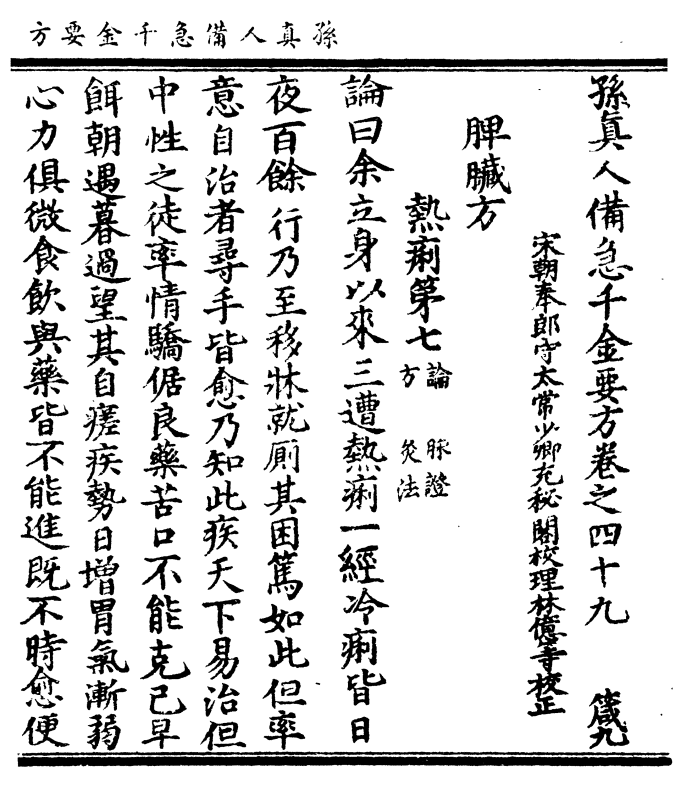 孫真人備急千金要方
孫真人備急千金要方卷之四十九 箴九
宋朝奉郎守太常少卿充秘閣校理林億等校正
脾臟方
熱痢第七 論 脉證 方 灸法
論曰余立身以來三遭熱痢一經冷痢皆日
夜百餘行乃至移牀就厠其困篤如此但率
意自治者尋手皆愈乃知此疾天下易治但
中性之徒率情驕倨良藥苦口不能克己早
餌朝遇暮過望其自瘥疾勢日增胃氣漸弱
心力俱微食飲與藥皆不能進既不時愈便